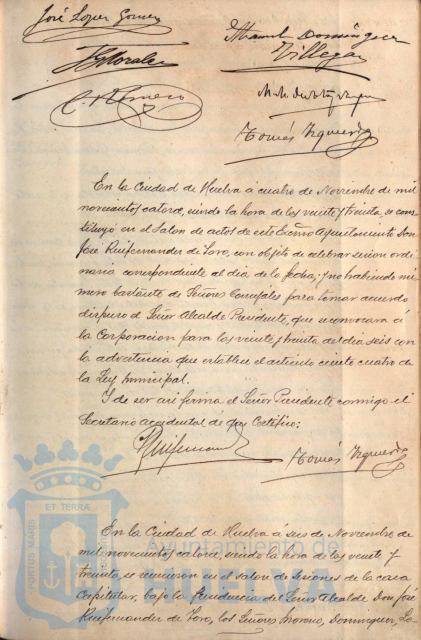 José Lopez Gomez
Manuel Dominguez
Villegas
Morales
Tomás Izquierdo
En la Ciudad de Huelva á cuatro de Noviembre de mil
novecientos catorce, siendo la hora de las veinte y treinta, se cons-
tituyó en el Salon de actos de este Excmo Ayuntamiento Don
José Ruifernandez de Toro, con objeto de celebrar sesion ordi-
naria correspondiente al dia de la fecha; y no habiendo nú-
mero bastante de Señores Concejales para tomar acuerdo
dispuso el Señor Alcalde Presidente, que se convocara á
la Corporacion para las veinte y treinta del dia seis con
la advertencia que establece el artículo ciento cuatro de
la Ley Municipal.
Y de ser asi firma el Señor Presidente conmigo el
Secretario accidental de que Certifico:
Ruifernandez
Tomás Izquierdo
En la Ciudad de Huelva á seis de Noviembre de
mil novecientos catorce, siendo la hora de las veinte y
treinta, se reunieron en el salon de sesiones de la casa
Capitular, bajo la Presidencia del Señor Alcalde Don José
Ruifernandez de Toro, los Señores Moreno, Dominguez, Lo-
PORTUS MARIS ET TERRÆ
Ayuntamiento de
HUELVA